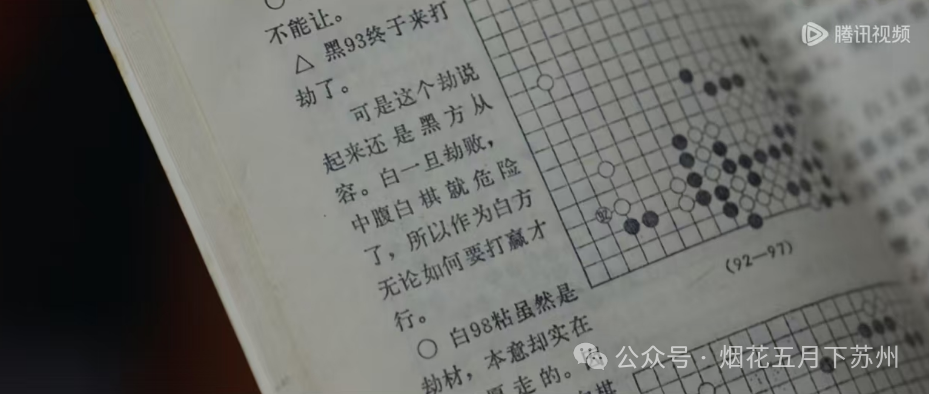 不能让。
△ 黑93终于来打
劫了。
可是这个劫说
起来还是黑方从
容。白一旦劫败，
中腹白棋就危险
了，所以作为白方
无论如何要打赢才
行。
○ 白98粘虽然是
劫材，本意却实在
走的。
(92—97)
腾讯视频
公众号·烟花五月下苏州